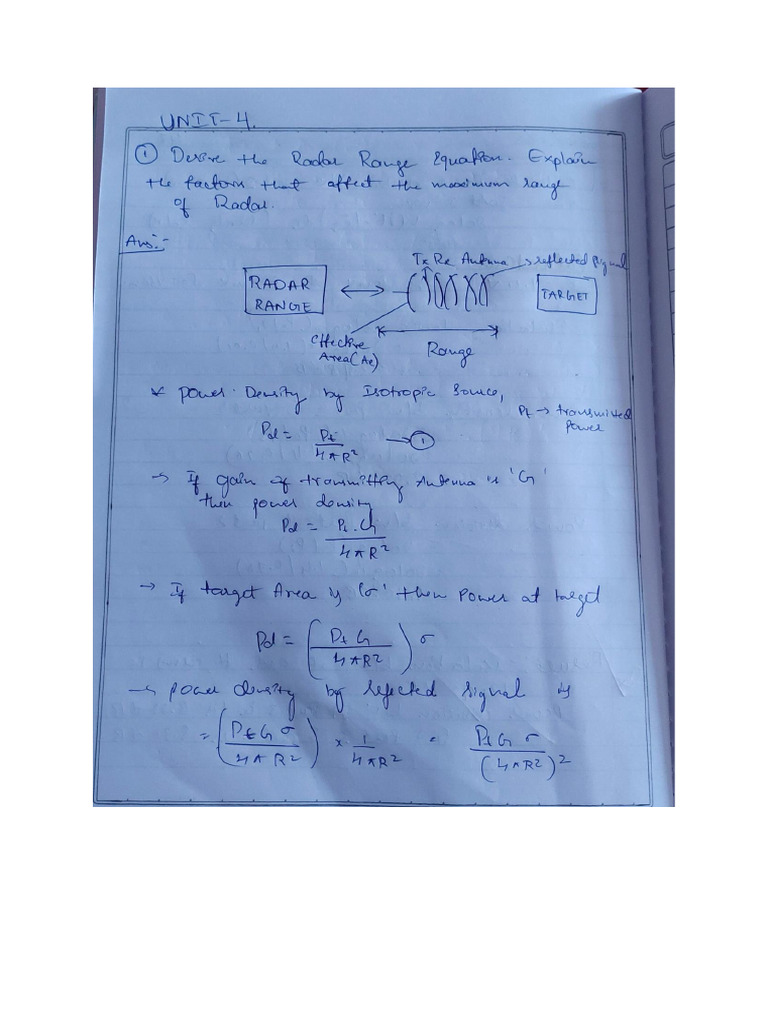 UNIT-4.
① Derive the Radar Range Equation. Explain
the factors that affect the maximum range
of Radar.
Ans:-
Tx Rx Antenna → reflected signal
RADAR
RANGE
TARGET
effective
Area (Ae)
Range
* Power Density by Isotropic Source,
Pt → transmitted
power
Pd = Pt / 4πR² → ①
→ If gain of transmitting Antenna is 'G'
then power density
Pd = Pt . G / 4πR²
→ If target Area is 'σ' then power at target
Pd = (Pt G / 4πR²) σ
→ Power density by reflected signal is
= (Pt G σ / 4πR²) × 1 / 4πR² = Pt G σ / (4πR²)²